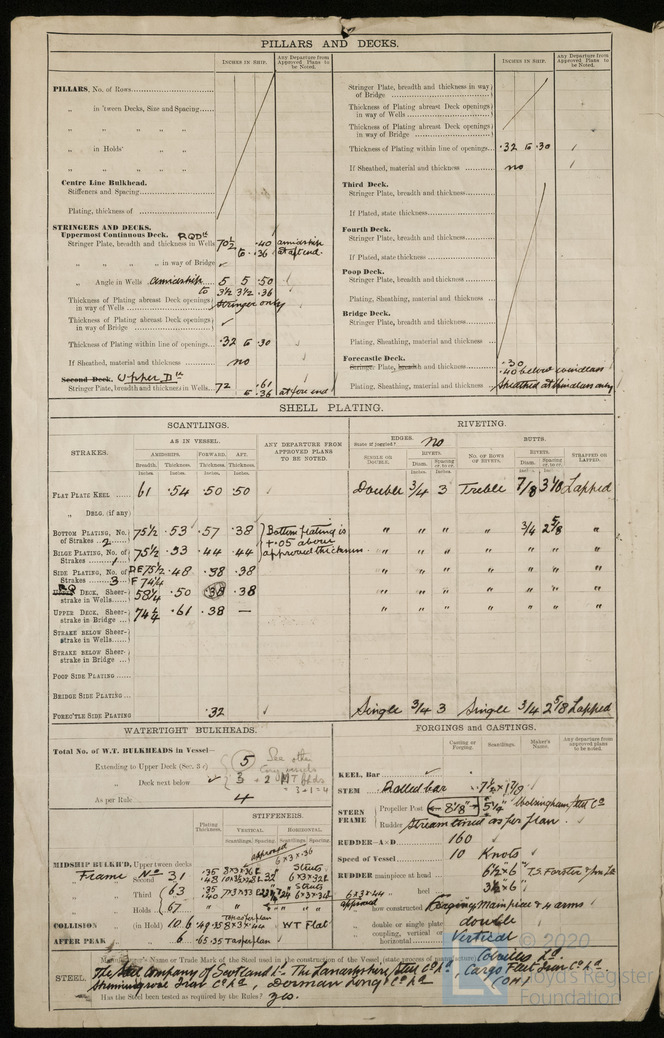 PILLARS AND DECKS.
INCHES IN SHIP.
Any Departure from Approved Plans to be Noted.
PILLARS, No. of Rows
„ in 'tween Decks, Size and Spacing
„ „ „ „ „
„ in Holds' „ „
„ „ „ „ „
Centre Line Bulkhead.
Stiffeners and Spacing
Plating, thickness of
STRINGERS AND DECKS.
Uppermost Continuous Deck. RQDk
Stringer Plate, breadth and thickness in Wells 70½ .40 to .36 amidship at aft end.
„ „ „ „ in way of Bridge
„ Angle in Wells amidship 5 5 .50
to 3½ 3½ .36
Thickness of Plating abreast Deck openings in way of Wells Stringer only
Thickness of Plating abreast Deck openings in way of Bridge
Thickness of Plating within line of openings .32 to .30
If Sheathed, material and thickness no
Second Deck. Upper Dk
Stringer Plate, breadth and thickness in Wells 72 .61 to .36 at fore end
INCHES IN SHIP.
Any Departure from Approved Plans to be Noted.
Stringer Plate, breadth and thickness in way of Bridge
Thickness of Plating abreast Deck openings in way of Wells
Thickness of Plating abreast Deck openings in way of Bridge
Thickness of Plating within line of openings .32 to .30
If Sheathed, material and thickness no
Third Deck.
Stringer Plate, breadth and thickness
If Plated, state thickness
Fourth Deck.
Stringer Plate, breadth and thickness
If Plated, state thickness
Poop Deck.
Stringer Plate, breadth and thickness
Plating, Sheathing, material and thickness
Bridge Deck.
Stringer Plate, breadth and thickness
Plating, Sheathing, material and thickness
Forecastle Deck.
Stringer Plate, breadth and thickness .30
.40 below windlass
Plating, Sheathing, material and thickness Sheathed at windlass only
SHELL PLATING.
SCANTLINGS.
RIVETING.
STRAKES.
AS IN VESSEL.
AMIDSHIPS. FORWARD. AFT.
Breadth. Thickness. Thickness. Thickness.
Inches. Inches. Inches. Inches.
ANY DEPARTURE FROM APPROVED PLANS TO BE NOTED.
EDGES. State if joggled? no
BUTTS.
SINGLE OR DOUBLE.
RIVETS.
Diam. Spacing cr. to cr.
NO. OF ROWS OF RIVETS.
RIVETS.
Diam. Spacing cr. to cr.
STRAPPED OR LAPPED.
FLAT PLATE KEEL 61 .54 .50 .50 Double 3/4 3 Treble 7/8 Lapped
„ DBLG. (if any)
BOTTOM PLATING, No. of Strakes 2 75½ .53 .57 .38 Bottom plating is +.05 above approved thickness. „ „ „ „ 3/4 2 5/8 „
BILGE PLATING, No. of Strakes 1 75½ .53 .44 .44 „ „ „ „ „ „ „
SIDE PLATING, No. of Strakes 3 .48 .38 .38 „ „ „ „ „ „ „
RQ DECK, Sheer-strake in Wells 58¼ .50 .38 .38 „ „ „ „ „ „ „
UPPER DECK, Sheer-strake in Bridge 74¼ .61 .38 — „ „ „ „ „ „ „
STRAKE BELOW Sheer-strake in Wells
STRAKE BELOW Sheer-strake in Bridge
POOP SIDE PLATING
BRIDGE SIDE PLATING
FORECTLE SIDE PLATING .32 Single 3/4 3 Single 3/4 2 5/8 Lapped
WATERTIGHT BULKHEADS.
Total No. of W.T. BULKHEADS in Vessel—
Extending to Upper Deck (Sec. 3 c) 5
„ Deck next below 3
As per Rule 4
Plating Thickness.
STIFFENERS.
VERTICAL. HORIZONTAL.
Scantlings. Spacing. Scantlings. Spacing.
approved 6 x 3 x .36
MIDSHIP BULKH'D, Upper tween decks
Frame No Second „ 31
Third „ 63
Holds 67
COLLISION „ (in Hold) W T Flat
AFTER PEAK „ „ 6
FORGINGS and CASTINGS.
Casting or Forging. Scantlings. Maker's Name. Any departure from approved plans to be noted.
KEEL, Bar
STEM Rolled bar
STERN FRAME
Propeller Post Wolsingham Steel Co
Rudder „ Streamlined as per plan.
RUDDER—A×D 160
Speed of Vessel 10 Knots
RUDDER mainpiece at head 6½ x 6 T.S. Forster
„ „ heel
„ how constructed Forging Mainpiece & 4 arms
„ double or single plate double
„ coupling, vertical or horizontal Vertical
STEEL.
Manufacturer's Name or Trade Mark of the Steel used in the construction of the Vessel (state process of manufacture) Colvilles Ld.
The Steel Company of Scotland Ld. The Lancashire Steel Co Ld., Cargo Fleet Iron Co Ld.
Skinningrove Iron Co Ld, Dorman Long & Co Ld (OH)
Has the Steel been tested as required by the Rules? Yes.
© 2020
Lloyd's Register
Foundation